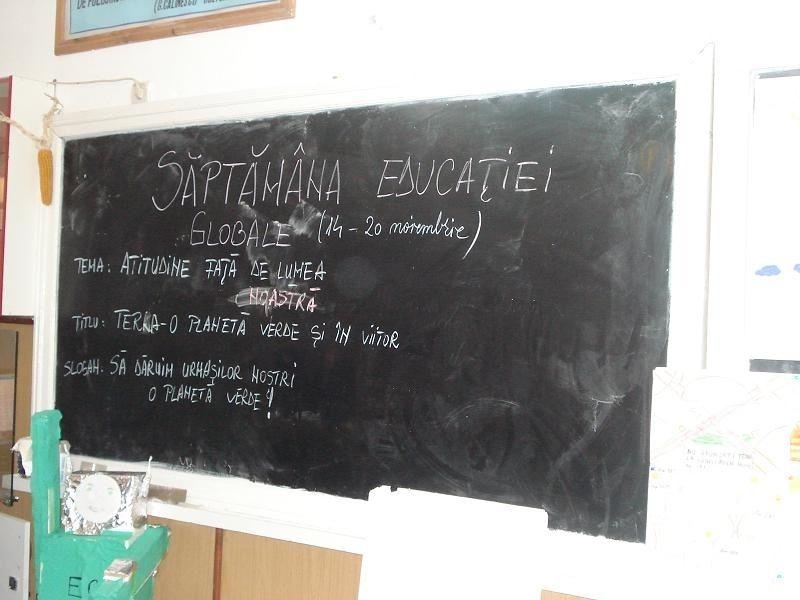 (G. CALINESCU)
SĂPTĂMÂNA EDUCAŢIEI
GLOBALE (14 - 20 noiembrie)
TEMA: ATITUDINE FAŢĂ DE LUMEA
NOASTRĂ
TITLU: TERRA - O PLANETĂ VERDE ŞI ÎN VIITOR
SLOGAN: SĂ DĂRUIM URMAŞILOR NOŞTRI
O PLANETĂ VERDE!
EC